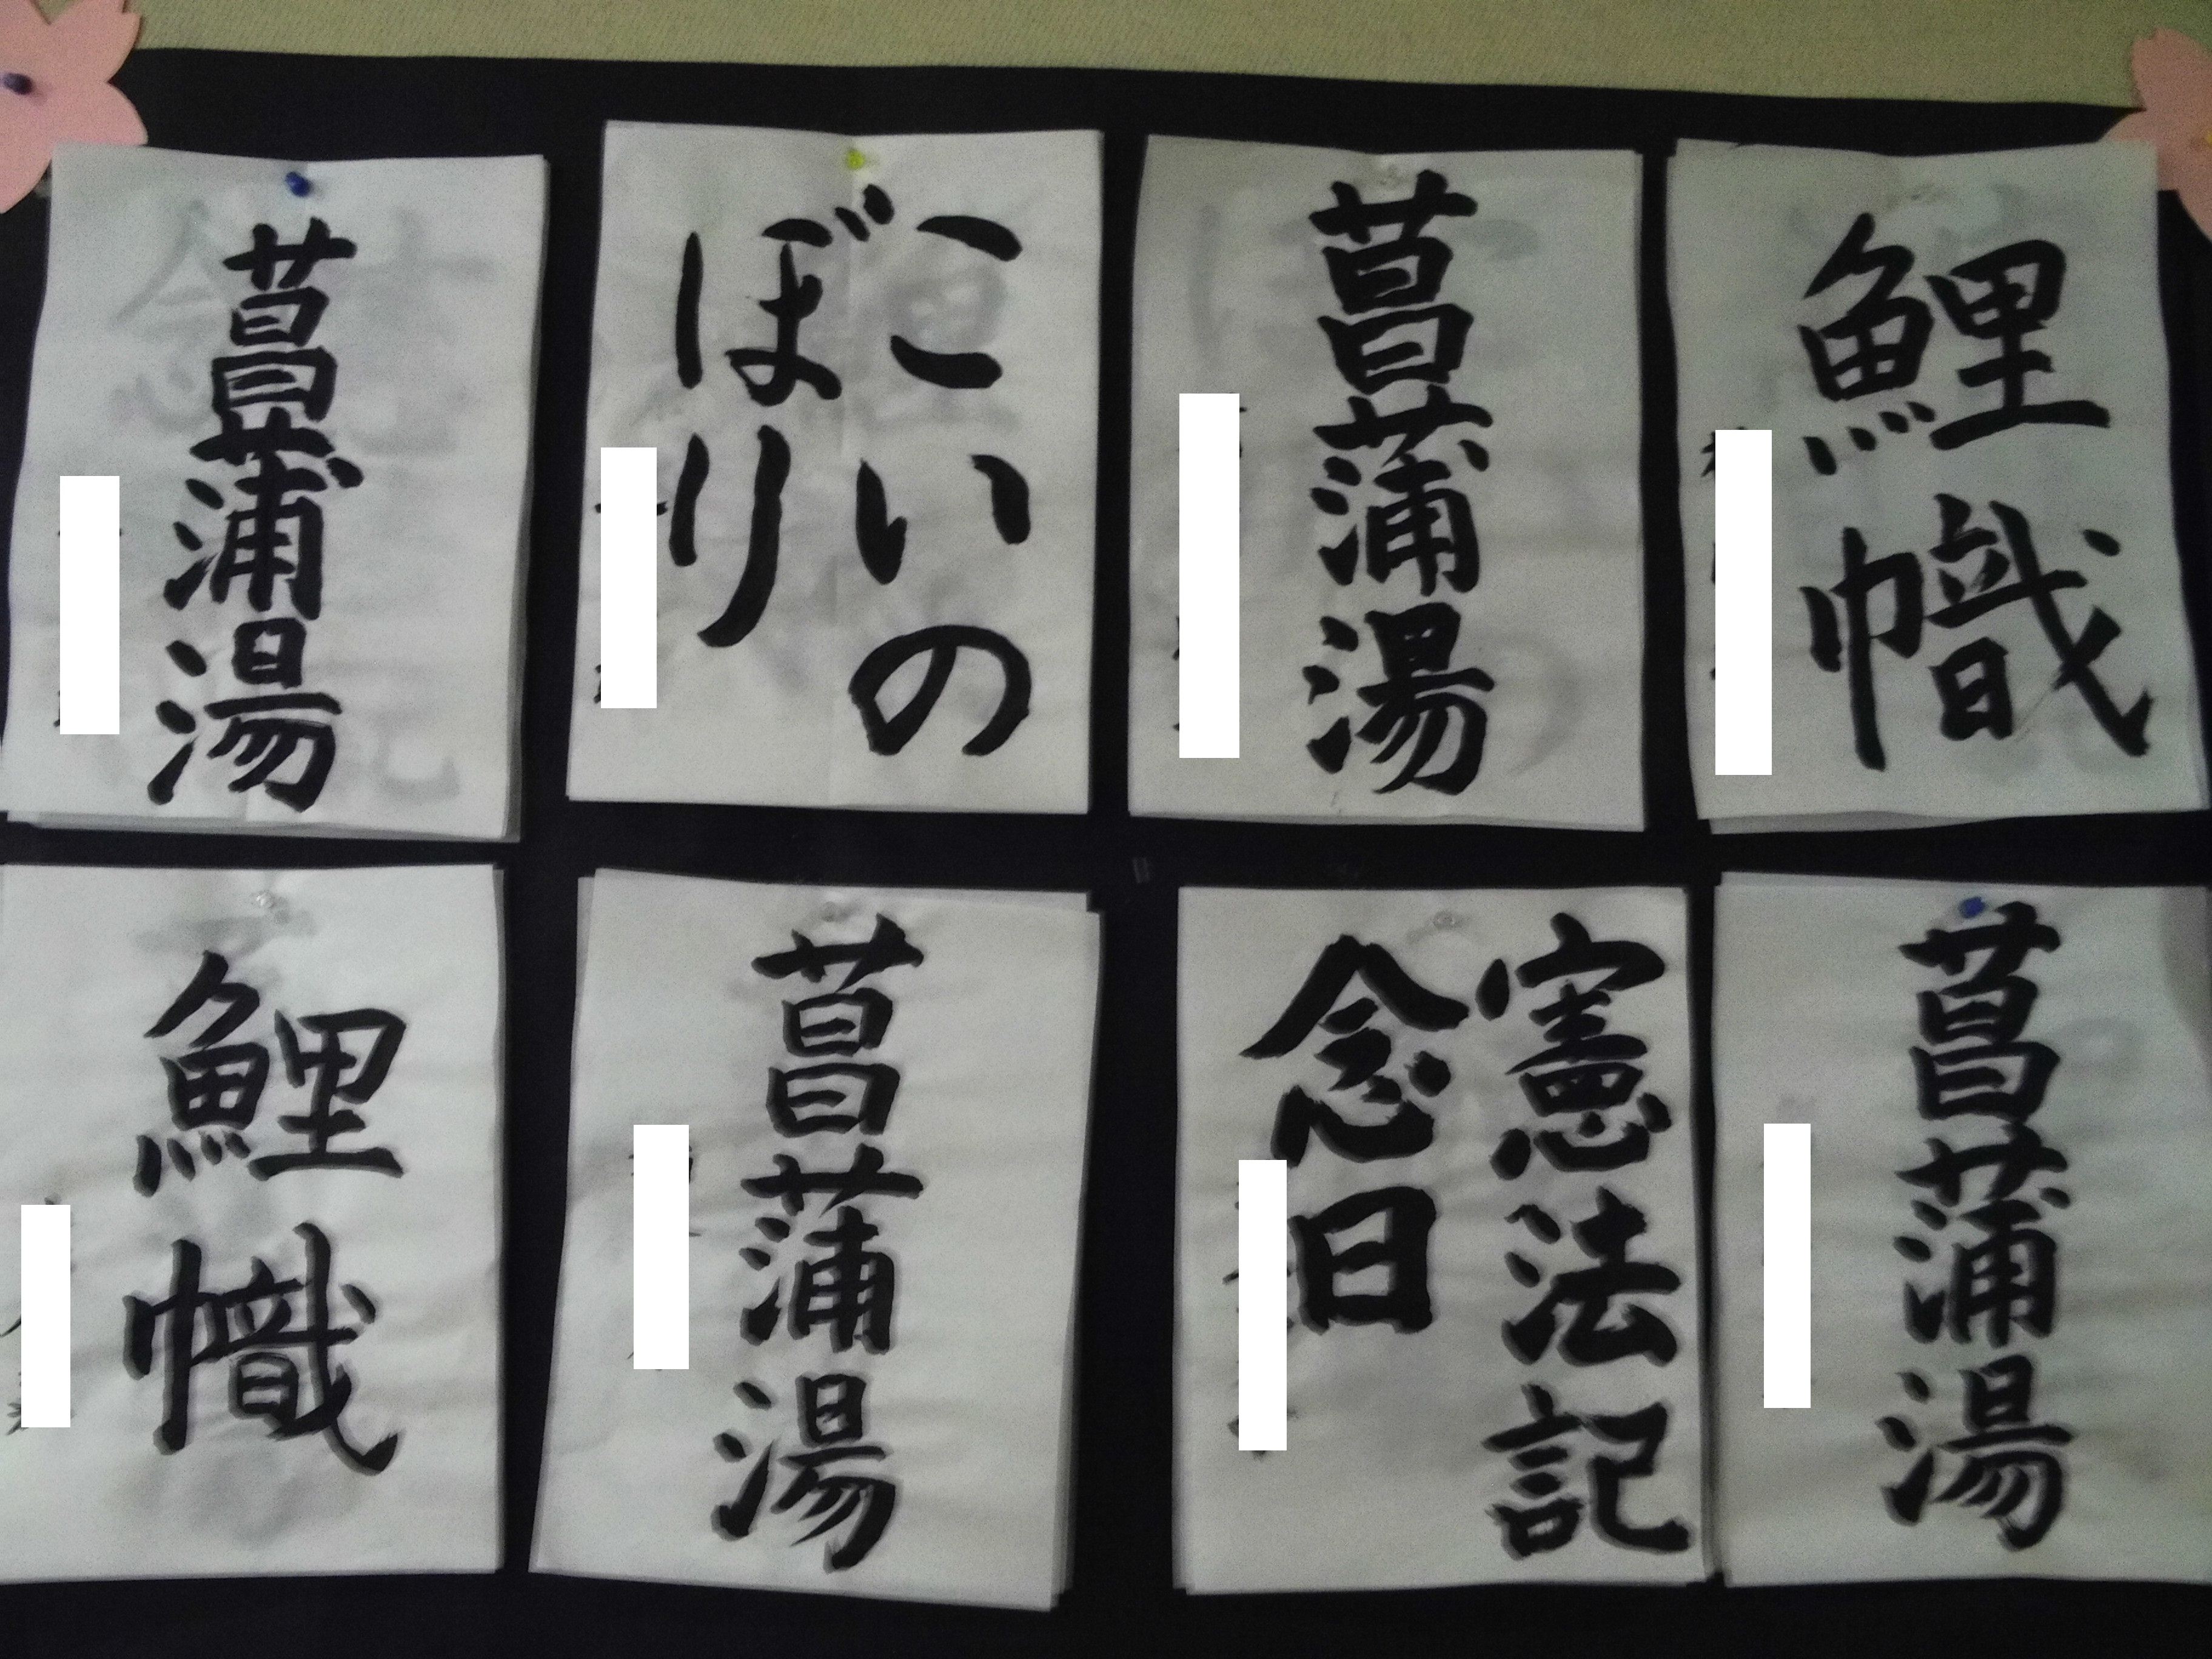 菖蒲湯
こいの
ぼり
菖蒲湯
鯉幟
鯉幟
菖蒲湯
憲法記
念日
菖蒲湯